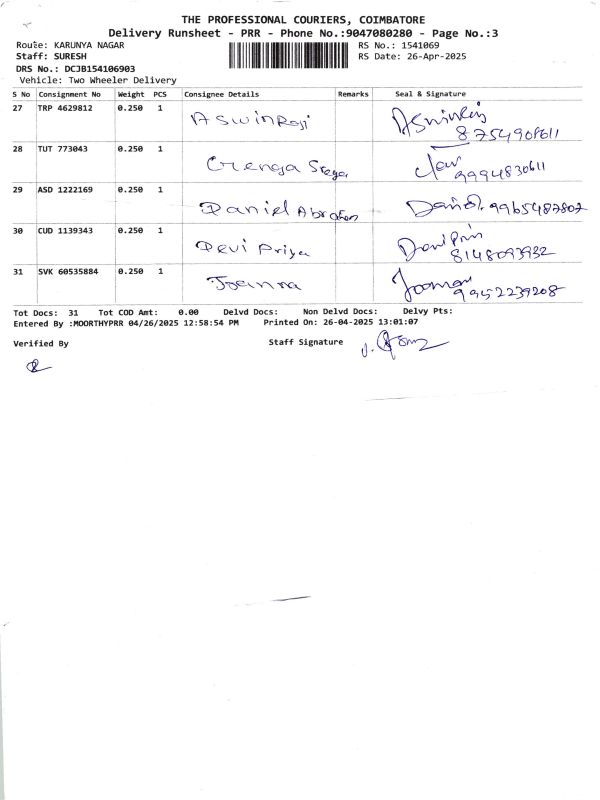 THE PROFESSIONAL COURIERS, COIMBATORE
Delivery Runsheet - PRR - Phone No.:9047080280 - Page No.:3
Route: KARUNYA NAGAR RS No.: 1541069
Staff: SURESH RS Date: 26-Apr-2025
DRS No.: DCJB154106903
Vehicle: Two Wheeler Delivery
S No Consignment No Weight PCS Consignee Details Remarks Seal & Signature
27 TRP 4629812 0.250 1
Aswin Roji
8754908611
28 TUT 773043 0.250 1
9994830611
29 ASD 1222169 0.250 1
Daniel Abraham Daniel. 9965487807
30 CUD 1139343 0.250 1
Devi Priya
8148093932
31 SVK 60535884 0.250 1
Joanna
9952239208
Tot Docs: 31 Tot COD Amt: 0.00 Delvd Docs: Non Delvd Docs: Delvy Pts:
Entered By :MOORTHYPRR 04/26/2025 12:58:54 PM Printed On: 26-04-2025 13:01:07
Verified By Staff Signature